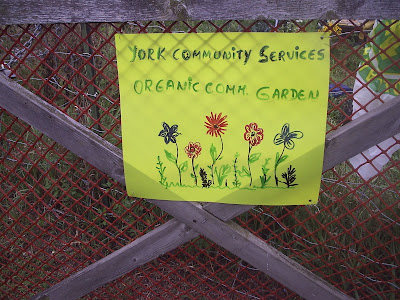 YORK COMMUNITY SERVICES
ORGANIC COMM. GARDEN